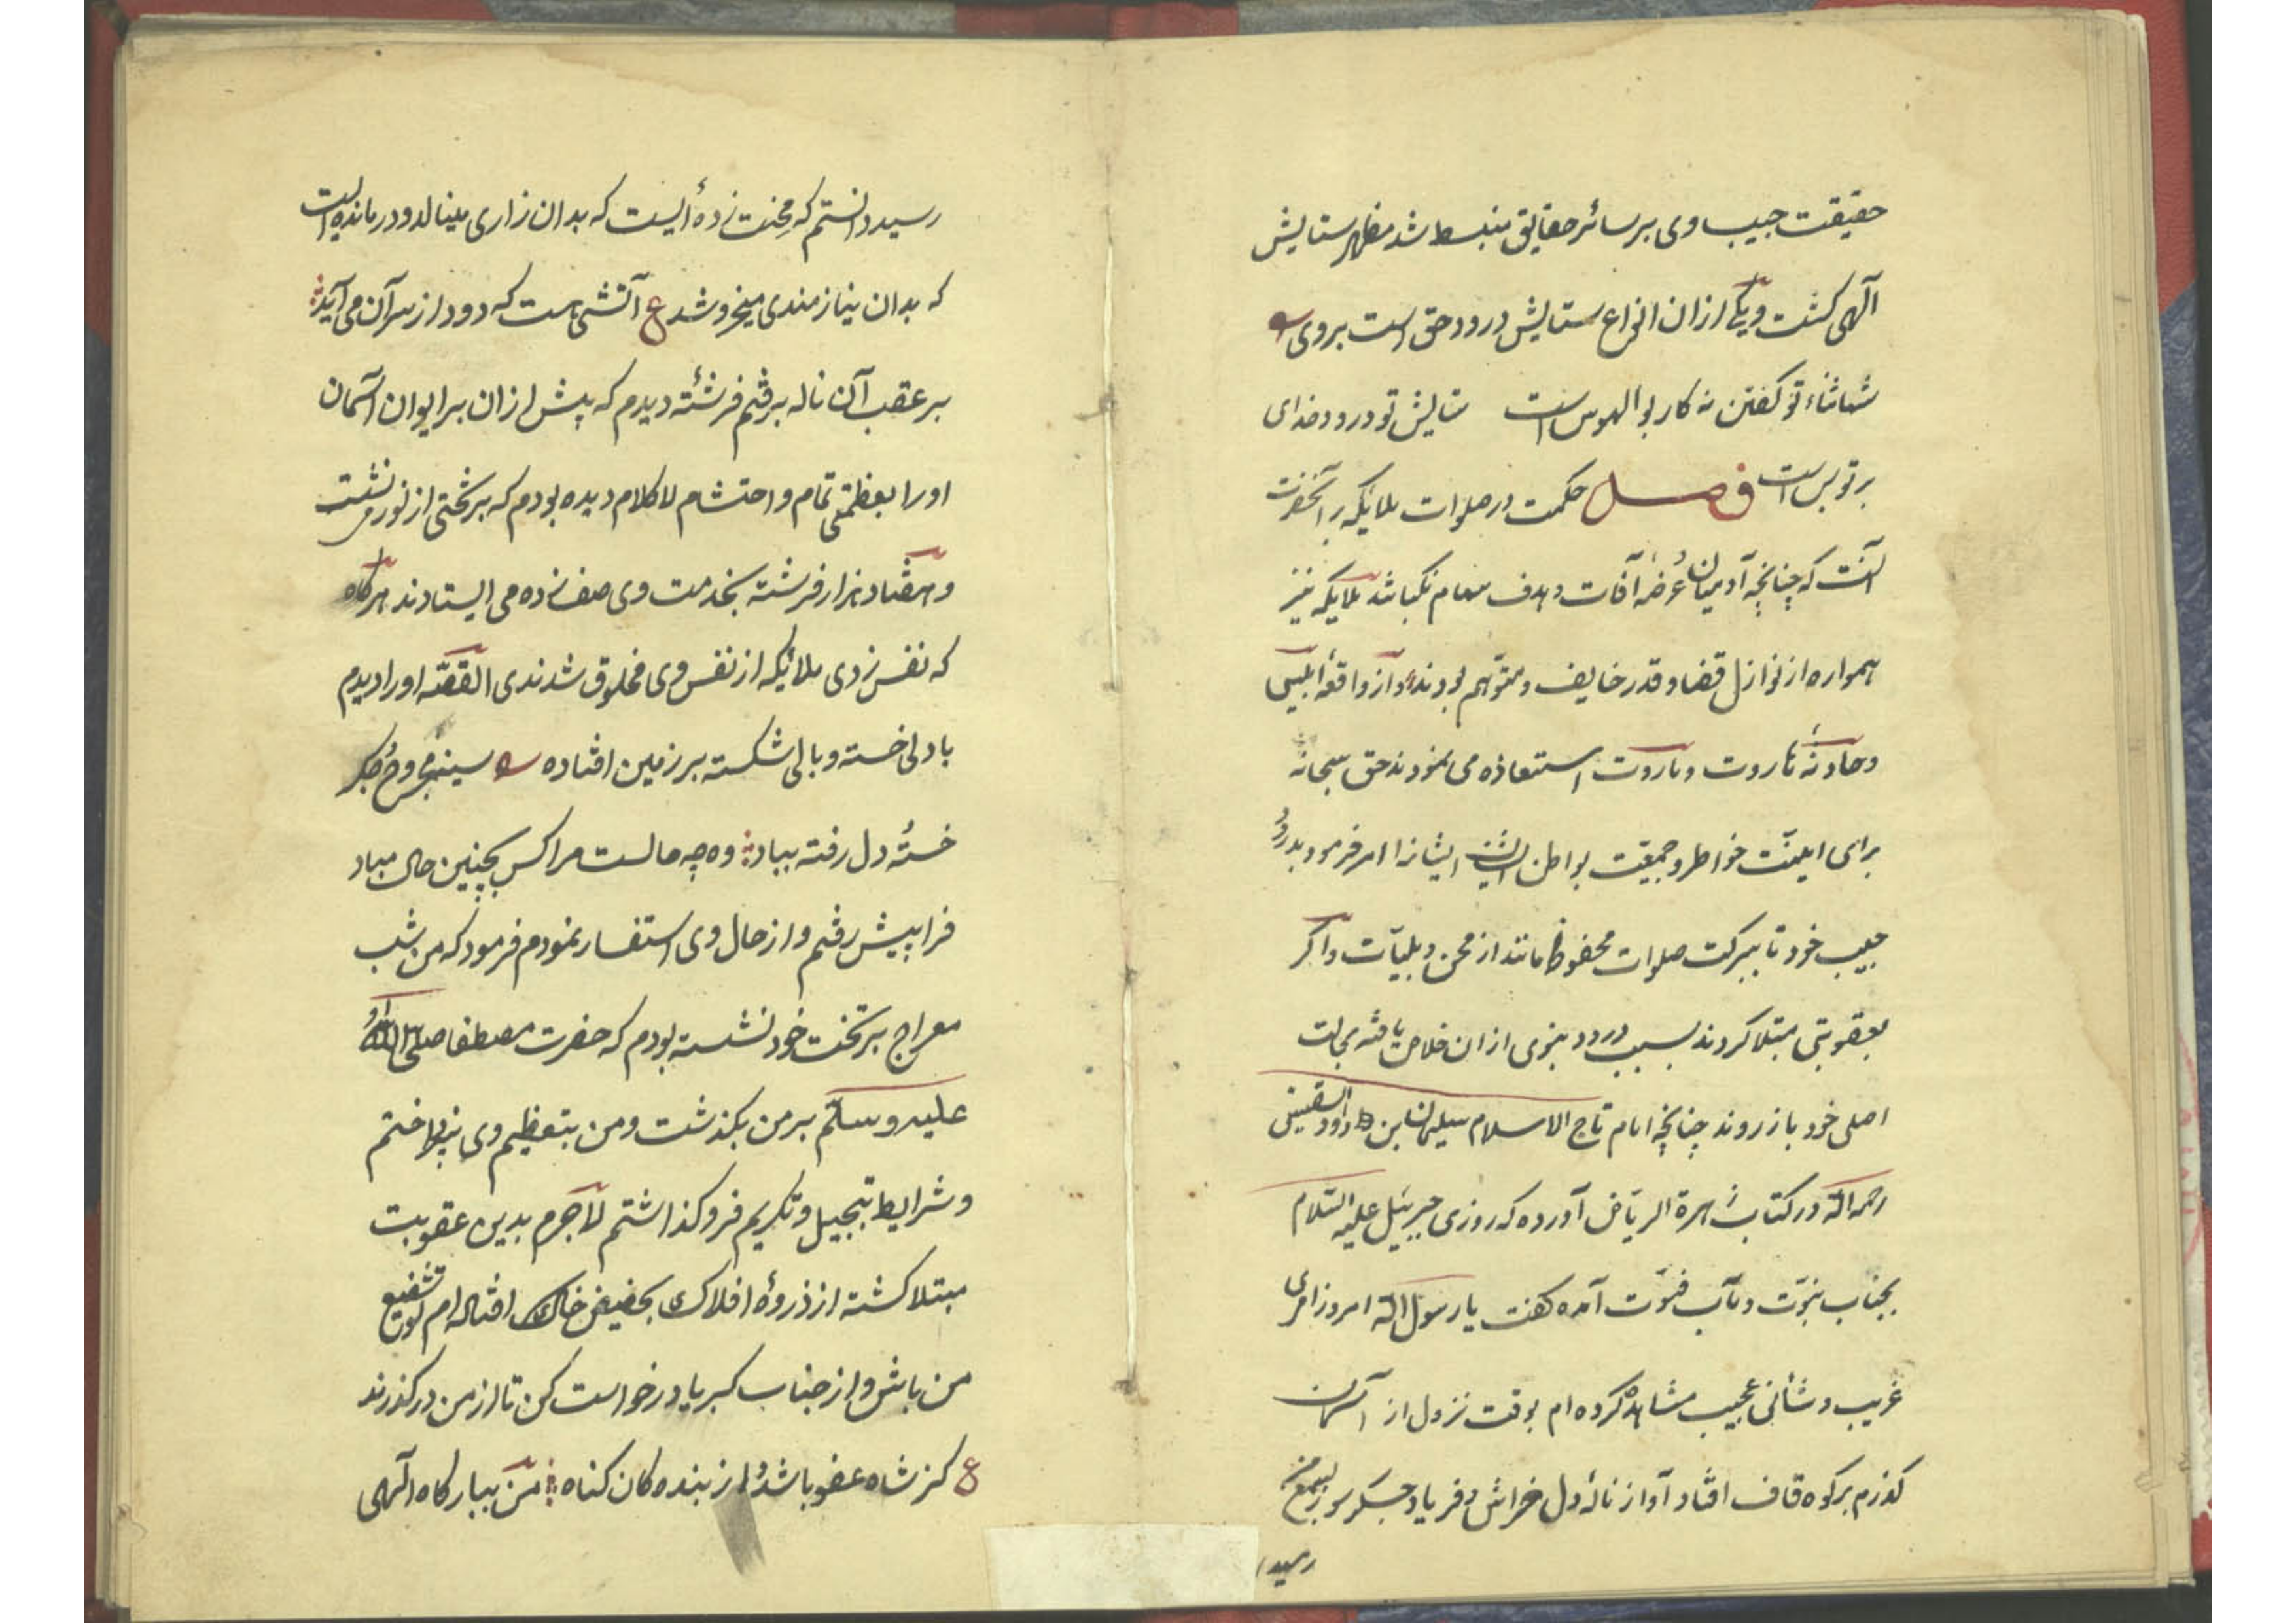 حقیقت حبیب وی بر سائر حقایق منبسط شد مظهر ستایش
آلهی کشت و یکی از ان انواع ستایش درود حق است بروی
شها ثناء تو کفتن نه کار بوالهوس است ستایش تو درود خدای
بر تو بس است فصل حکمت در صلوات ملایکه بر آنحضرت
آنست که چنانچه آدمیان عرضهٔ آفات و هدف سهام نکباشد ملایکه نیز
همواره از نوازل قضا و قدر خایف و متوهم بودند و از واقعهٔ ابلیس
و حادثهٔ هاروت و ماروت استعاذه می نمودند حق سبحانه
برای امنیّت خواطر و جمعیّت بواطن ایشانرا امر فرمود بدرود
حبیب خود تا ببرکت صلوات محفوظ مانند از محن و بلیّات و اکر
بعقوبتی مبتلا کردند بسبب درود نبوی ازان خلاص یافته بحالت
اصلی خود باز روند چنانچه امام تاج الاسلام سلیمان بن داود السقینی
رحمه الله در کتاب زهرة الریاض آورده که روزی جبرئیل علیه السّلام
بجناب نبوّت و مآب فتوّت آمده کفت یا رسول الله امروز امری
غریب و شأنی عجیب مشاهده کرده ام بوقت نزول از آسمان
کذرم بر کوه قاف افتاد آواز نالهٔ دل خراش و فریاد جکر سوز بسمع من
رسید
رسید دانستم که محنت زدهٔ ایست که بدان زاری مینالد و درمانده است
که بدان نیازمندی میخروشد ع آتشی هست که دود از سر آن می آید
بر عقب آن ناله برفتم فرشتهٔ دیدم که پیش ازان بر ایوان آسمان
اورا بعظمتی تمام و احتشام لا کلام دیده بودم که بر تختی از نور می نشست
و هفتاد هزار فرشته بخدمت وی صف زده می ایستادند هرکاه
که نفس زدی ملایکه از نفس وی مخلوق شدندی القصّه اورا دیدم
با دلی خسته و بالی شکسته بر زمین افتاده سینه مجروح جکر
خسته دل رفته بباد وه چه حالست مرا کس بچنین حال مباد
فرا پیش رفتم و از حال وی استفسار نمودم فرمود که من شب
معراج بر تخت خود نشسته بودم که حضرت مصطفا صلی الله
علیه و سلّم بر من بکذشت و من بتعظیم وی نپرداختم
و شرایط تبجیل و تکریم فرو کذاشتم لاجرم بدین عقوبت
مبتلا کشته از ذروهٔ افلاک بحضیض خاک افتاده ام تو شفیع
من باش و از جناب کبریا درخواست کن تا از من درکذرند
ع کز شاه عفو باشد از بنده کان کناه من ببارکاه آلهی